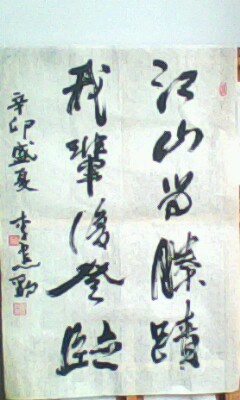 江山留勝蹟
我輩復登臨
辛卯盛夏 李